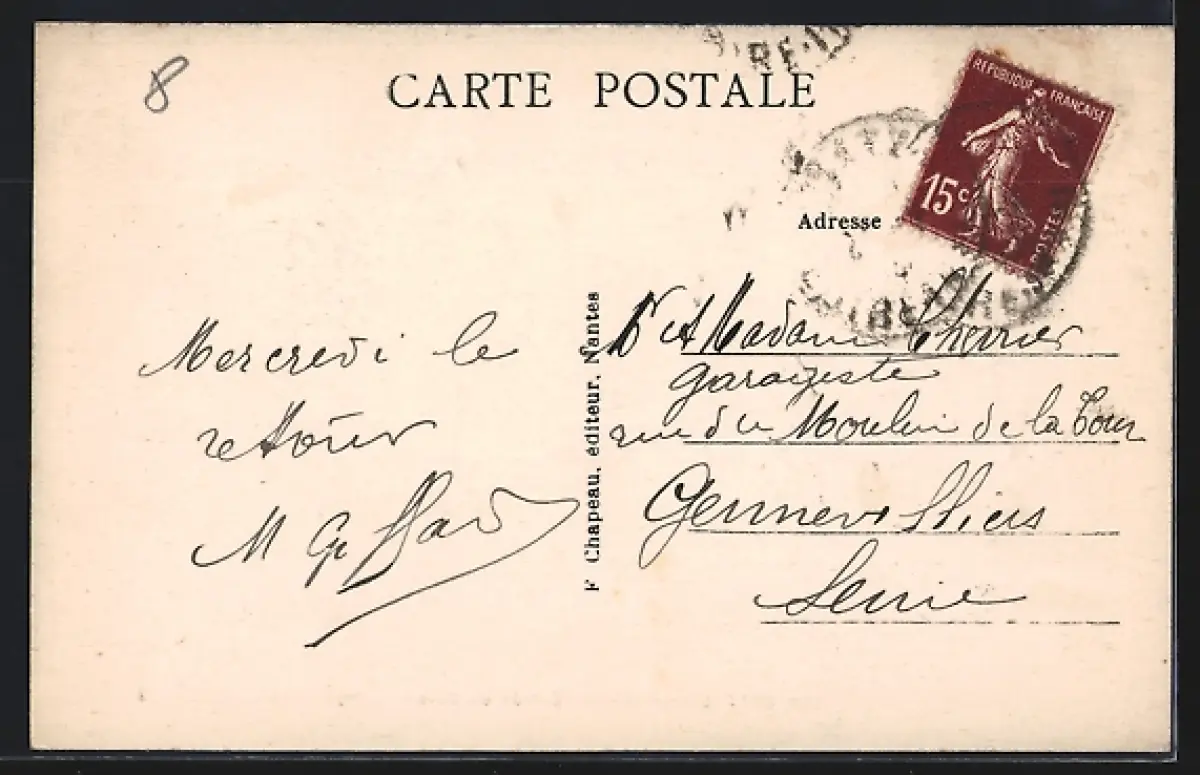 8
CARTE POSTALE
RE-
REPUBLIQUE FRANÇAISE
15c
POSTES
Adresse
Mercredi le
retour
M Giffard
F Chapeau, éditeur, Nantes
et Madame
garagiste
rue du Moulin de la Tour
Gennevilliers
Seine